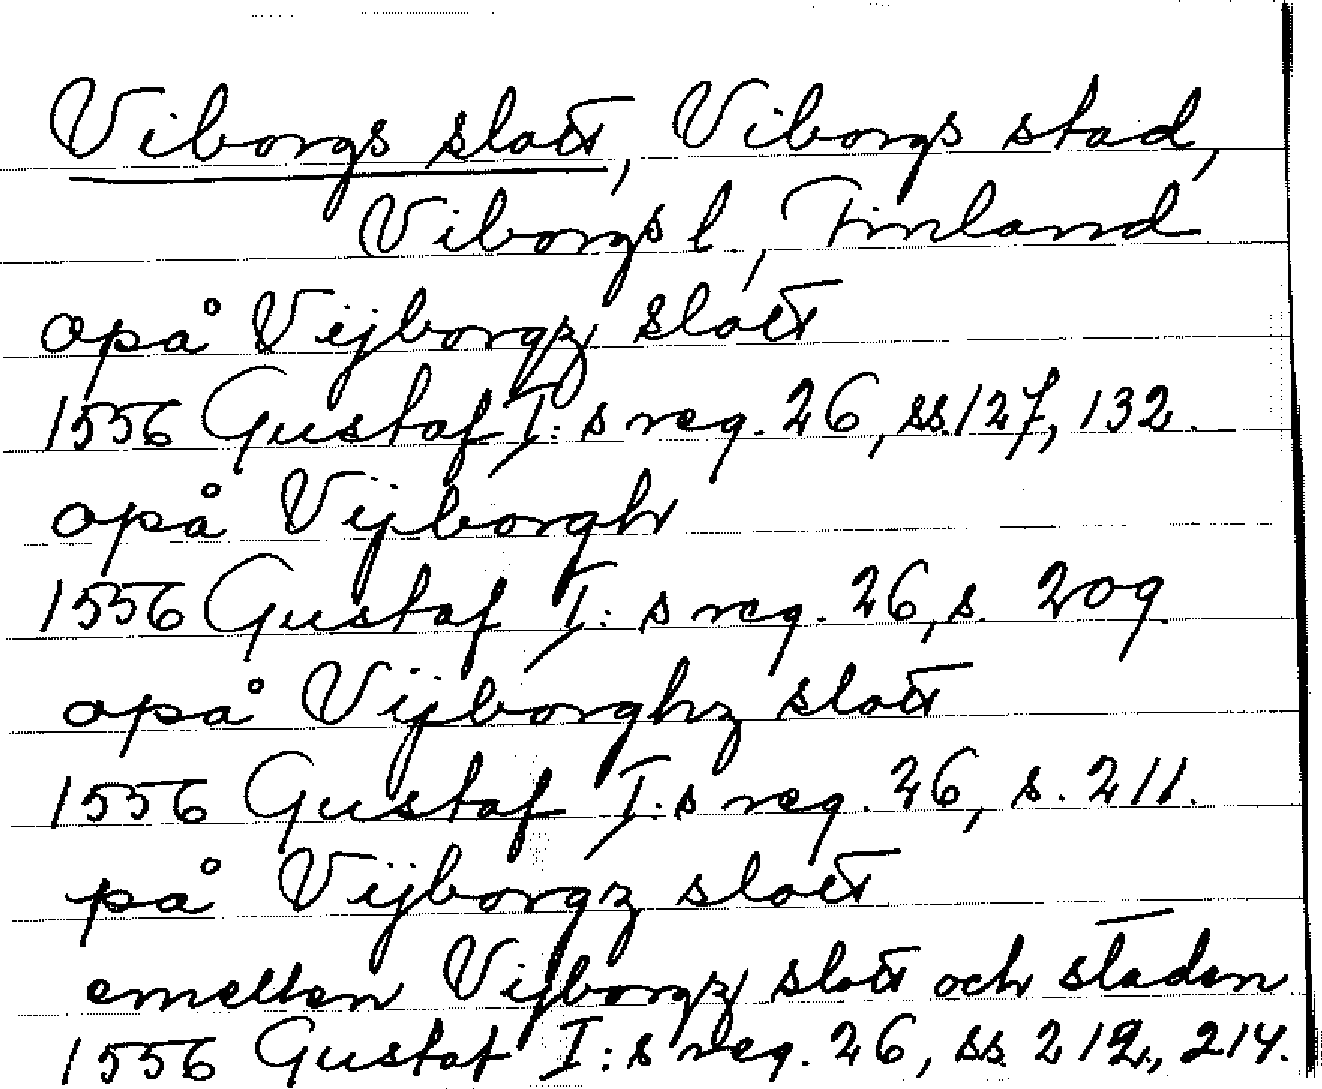 Viborgs slott, Viborgs stad,
Viborgs l, Finland
opå Vijborgz slott
1556 Gustaf I:s reg. 26, ss. 127, 132.
opå Vijborgh
1556 Gustaf I:s reg. 26, s. 209
opå Vijborghz slott
1556 Gustaf I:s reg. 26, s. 211.
på Vijborgz slott
emellan Vijborgz slott och staden
1556 Gustaf I:s reg. 26, ss 212, 214.